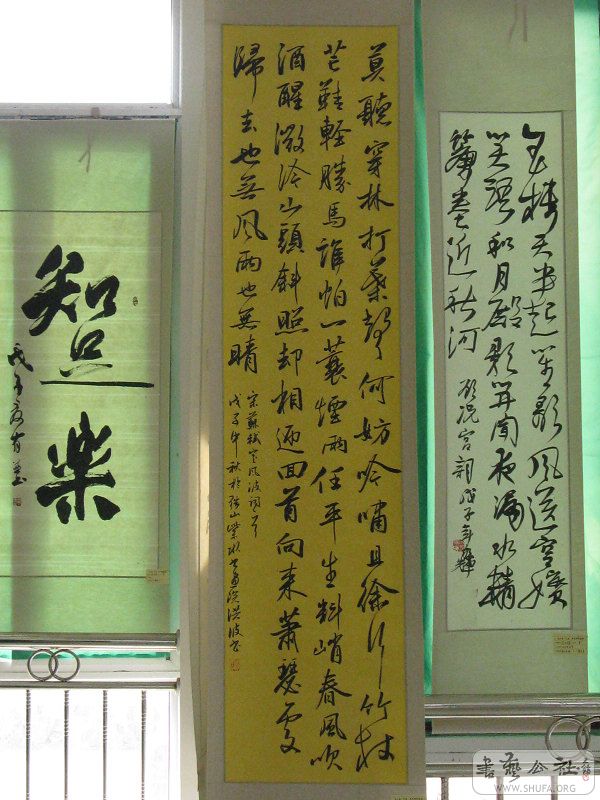 玉樓天半起笙歌風送宮嬪
笑語和月殿影開聞夜漏水精
簾卷近秋河
顧況宮詞戊子年
莫聽穿林打葉聲何妨吟嘯且徐行竹杖
芒鞋輕勝馬誰怕一蓑煙雨任平生料峭春風吹
酒醒微冷山頭斜照却相迎回首向來蕭瑟處
歸去也無風雨也無晴
宋蘇軾定風波詞一首
戊子年秋於山紫書畫院洪波書
知足樂
戊子夏
書藝公社
WWW.SHUFA.ORG